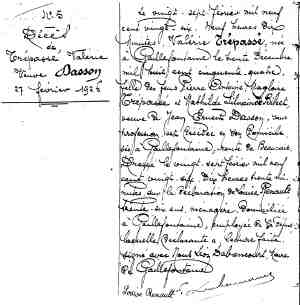 N° 5
Décès
de
Trépasse Valérie
Veuve Dasson
27 février 1926
Le vingt-sept février mil neuf
cent vingt six, neuf heures dix
minutes, Valérie Trépasse, née
à Gaillefontaine le trente Décembre
mil huit cent cinquante quatre,
fille des feus Pierre
Trépasse et Mathilde
veuve de Jean Ernest Dasson, sans
profession est décédée en son domicile
sis à Gaillefontaine, route de Beauvais,
Dressé le vingt sept février mil neuf
cent vingt six, dix heures trente mi
nutes sur la déclaration de Louise Renault
trente six ans, ménagère domiciliée
à Gaillefontaine, employée de
laquelle déclarante a, lecture faite
signé avec Nous Léon Dubancourt, Maire
de Gaillefontaine
Louise Renault